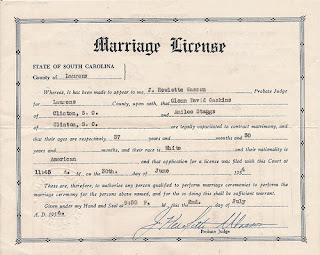 Marriage License
STATE OF SOUTH CAROLINA
County of Laurens
Whereas, It has been made to appear to me, J. Hewlette Wasson Probate Judge
for Laurens County, upon oath, that Glenn David Gaskins
of Clinton, S. C. and Anilee Staggs
of Clinton, S. C. are legally capacitated to contract matrimony, and
that their ages are respectively 57 years and months and 38
years and months, and their race is White and their nationality is
American and that application for a license was filed with this Court at
11:45 A. M., on the 30th. day of June 195
These are, therefore, to authorize any person qualified to perform marriage ceremonies to perform the
marriage ceremony for the persons above named, and for so doing this shall be sufficient warrant.
Given under my Hand and Seal at P. M., this 2nd. day of July
A. D. 195
J. Hewlette Wasson
Probate Judge